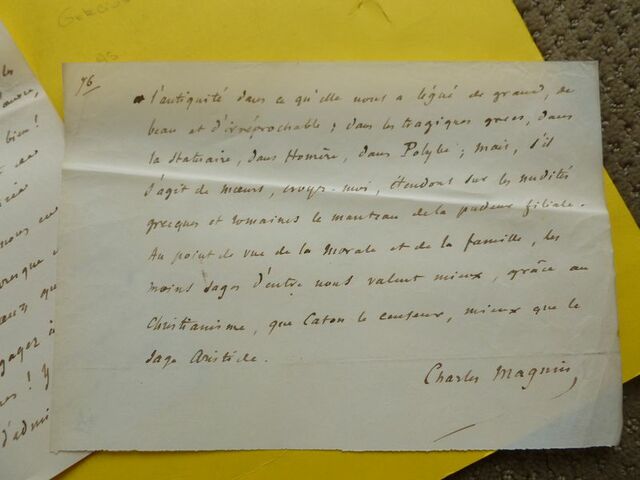 76
l'antiquité dans ce qu'elle nous a légué de grand, de
beau et d'irréprochable ; dans les tragiques grecs, dans
la statuaire, dans Homère, dans Polybe ; mais, s'il
s'agit de mœurs, croyez-moi, étendons sur les nudités
grecques et romaines le manteau de la pudeur filiale.
Au point de vue de la morale et de la famille, les
moins sages d'entre nous valent mieux, grâce au
Christianisme, que Caton le censeur, mieux que le
sage Aristide.
Charles Magnin
les
bien !
nous en
presque
gager à
! Y
d'admi